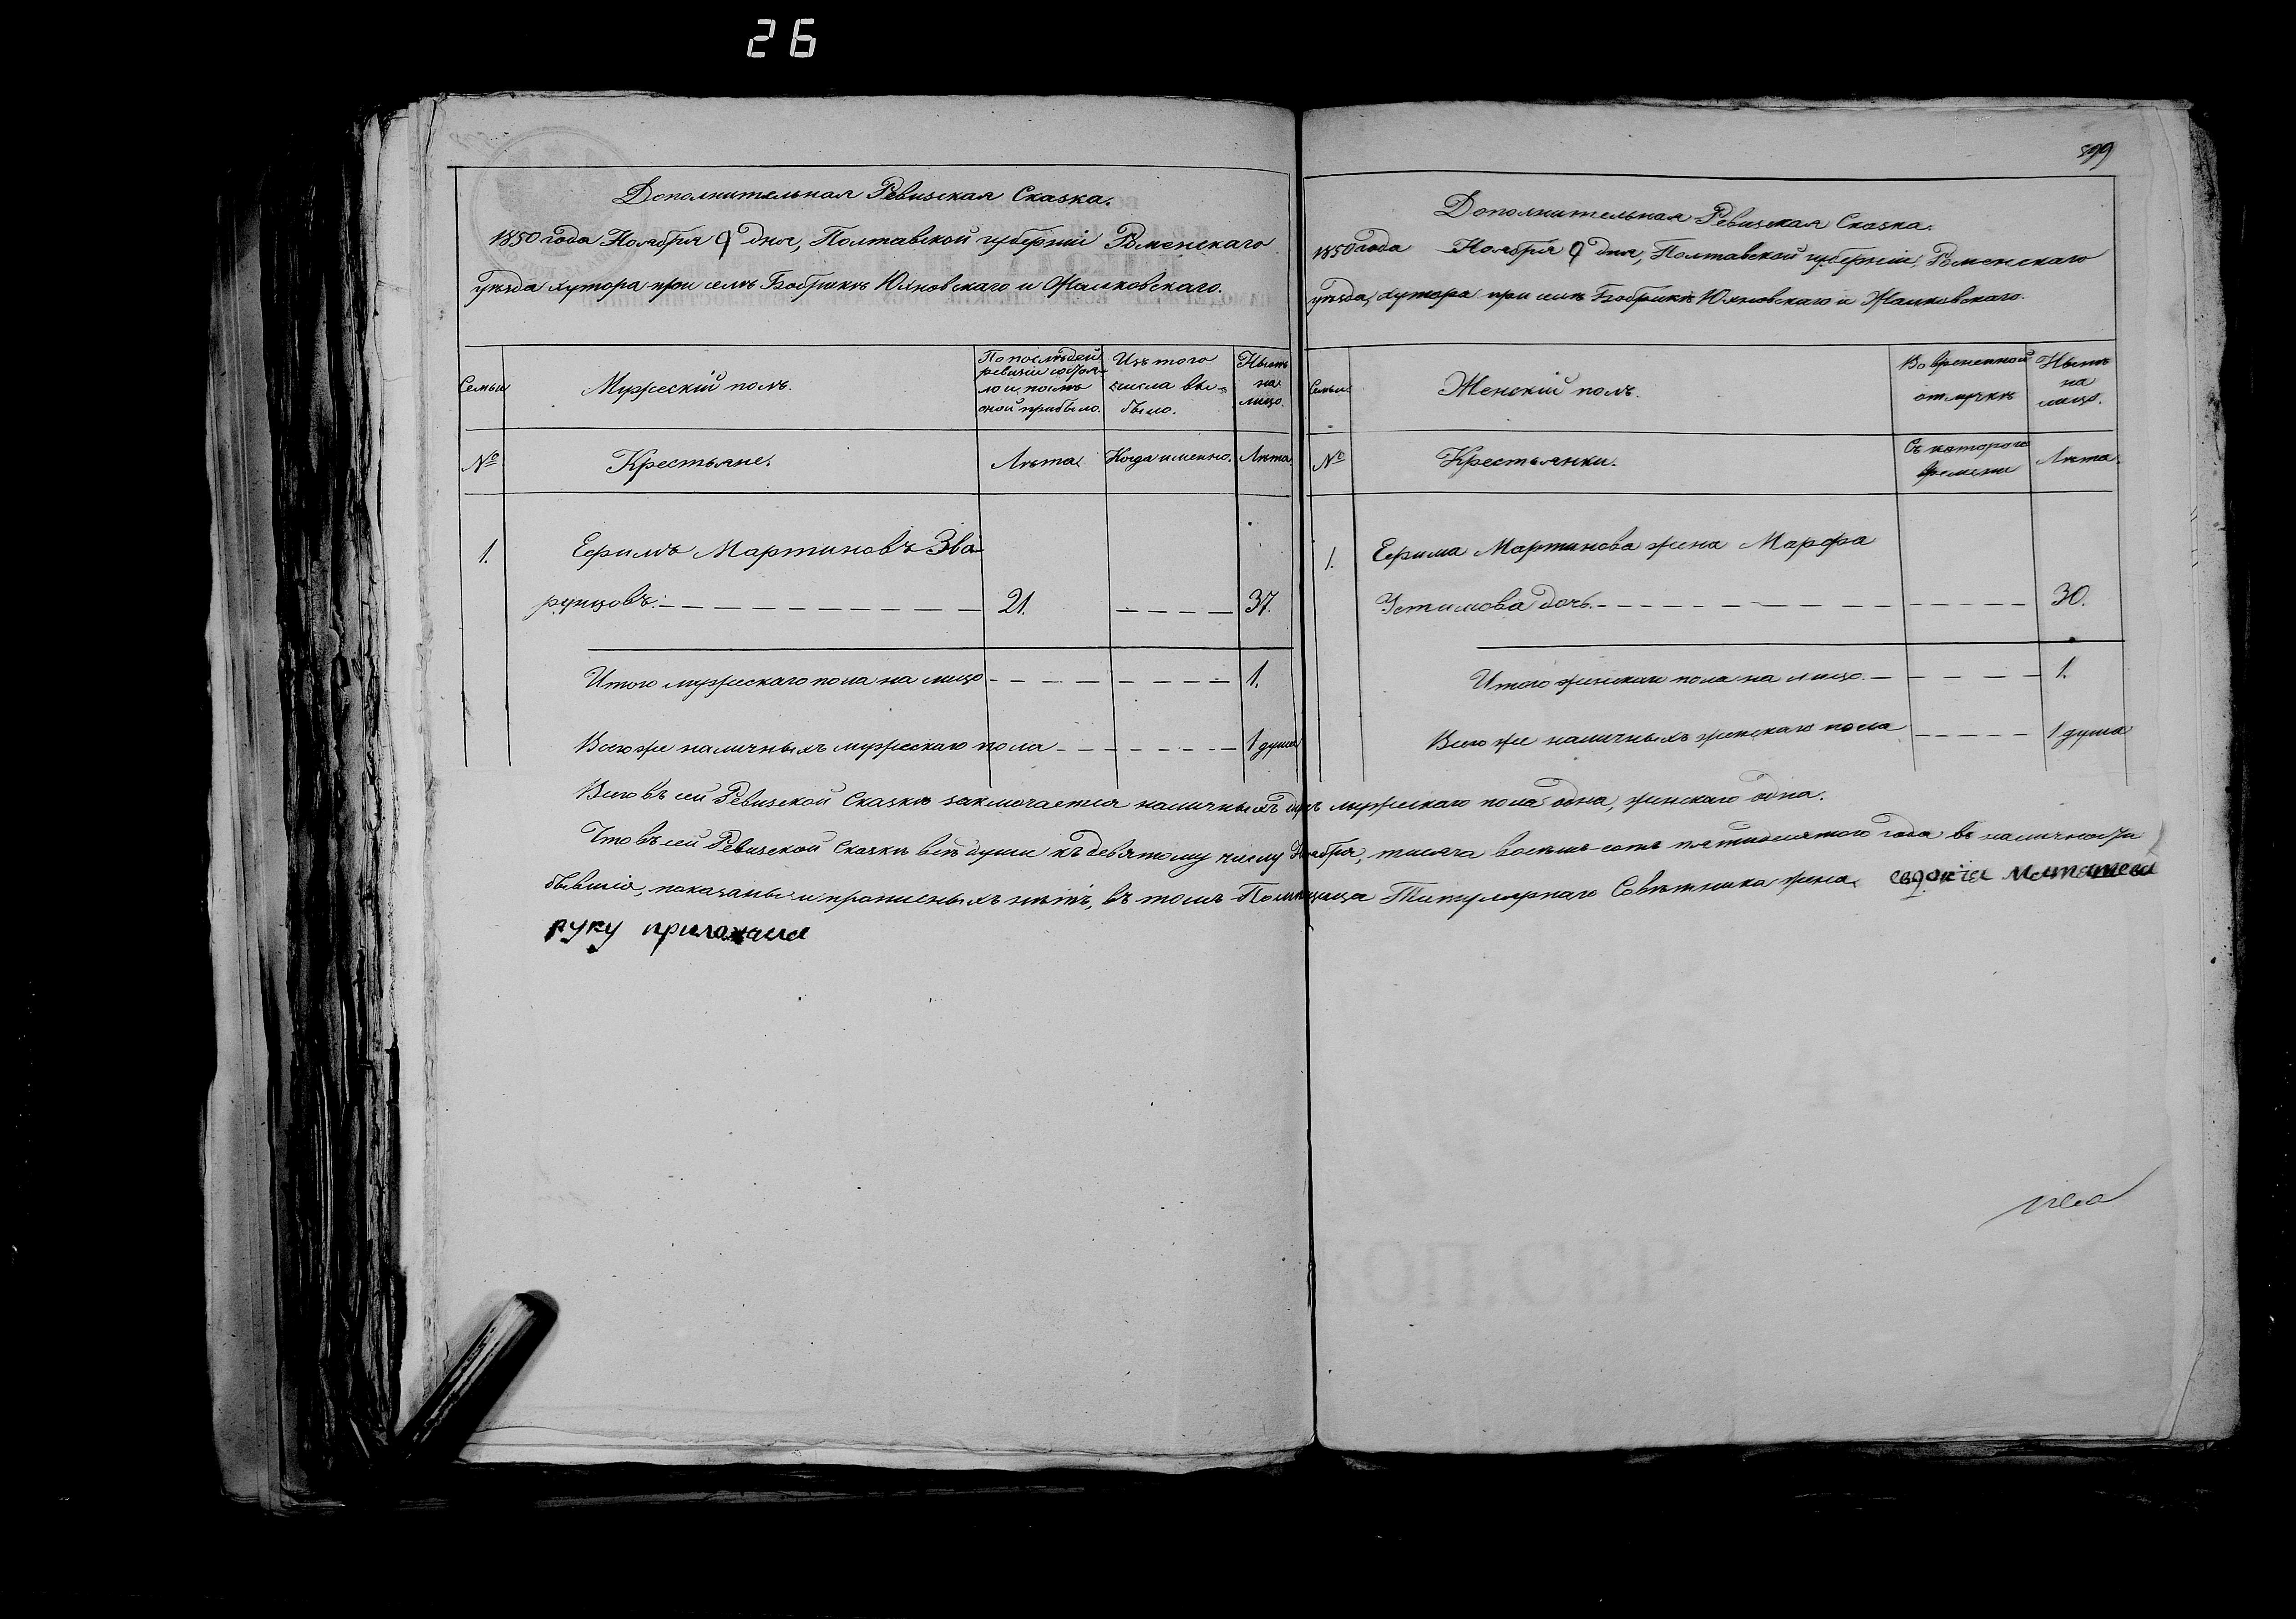 26
599
Дополнительная Ревизская Сказка.
1850 года Ноября 9 дня, Полтавской губерніи Роменскаго
уѣзда хутора при селѣ Бобрикѣ Юхновскаго и
Семьи
Мужескій полъ.
По послѣдней
ревизіи состоя-
ло и послѣ
оной прибыло.
Изъ того
числа вы-
было.
Нынѣ
на
лицо.
№
Крестьяне.
Лѣта.
Когда именно.
Лѣта.
1.
Ефимъ Мартиновъ Зва-
рунцовъ. 21. 37.
Итого мужескаго пола на лицо 1.
Всего же наличныхъ мужескаго пола 1 душа
Дополнительная Ревизская Сказка.
1850 года Ноября 9 дня, Полтавской губерніи, Роменскаго
уѣзда, хутора при селѣ Бобрикѣ Юхновскаго и
Семьи
Женскій полъ.
Во временной
отлучкѣ
Нынѣ
на
лицо.
№
Крестьянки.
Съ котораго
времени
Лѣта.
1.
Ефима Мартинова жена Марфа
Устимова дочь. 30.
Итого женскаго пола на лицо 1.
Всего же наличныхъ женскаго пола 1 душа
Всего въ сей Ревизской Сказкѣ заключается наличныхъ душъ мужескаго пола одна, женскаго одна.
Что въ сей Ревизской Сказкѣ всѣ души къ девятому числу Ноября, тысяча восемь-сотъ пятидесятого года въ наличности
бывшія, показаны и прописныхъ нѣтъ, въ томъ Помѣщица Титулярнаго Совѣтника жена евдокія
руку приложила